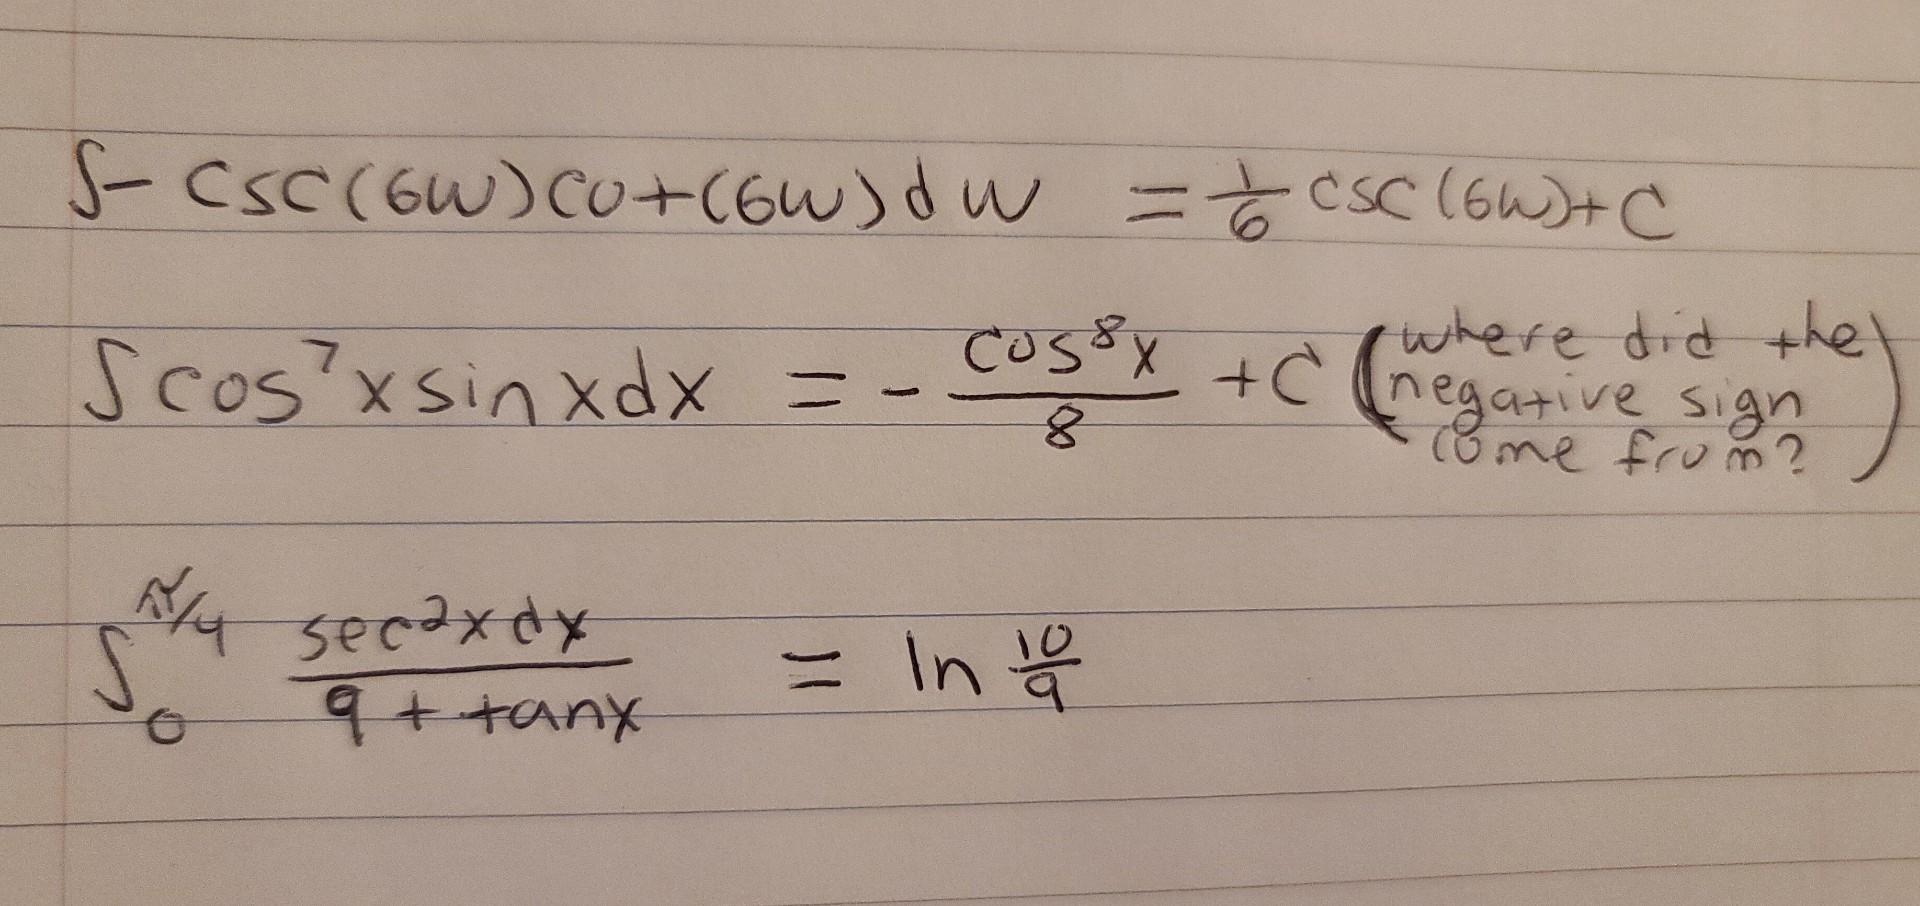 ∫- csc(6w)cot(6w)dw = 1/6 csc(6w)+C
∫cos⁷x sinx dx = - cos⁸x/8 + C (where did the negative sign come from?)
∫₀^π/4 sec²x dx / 9 + tanx = ln 10/9